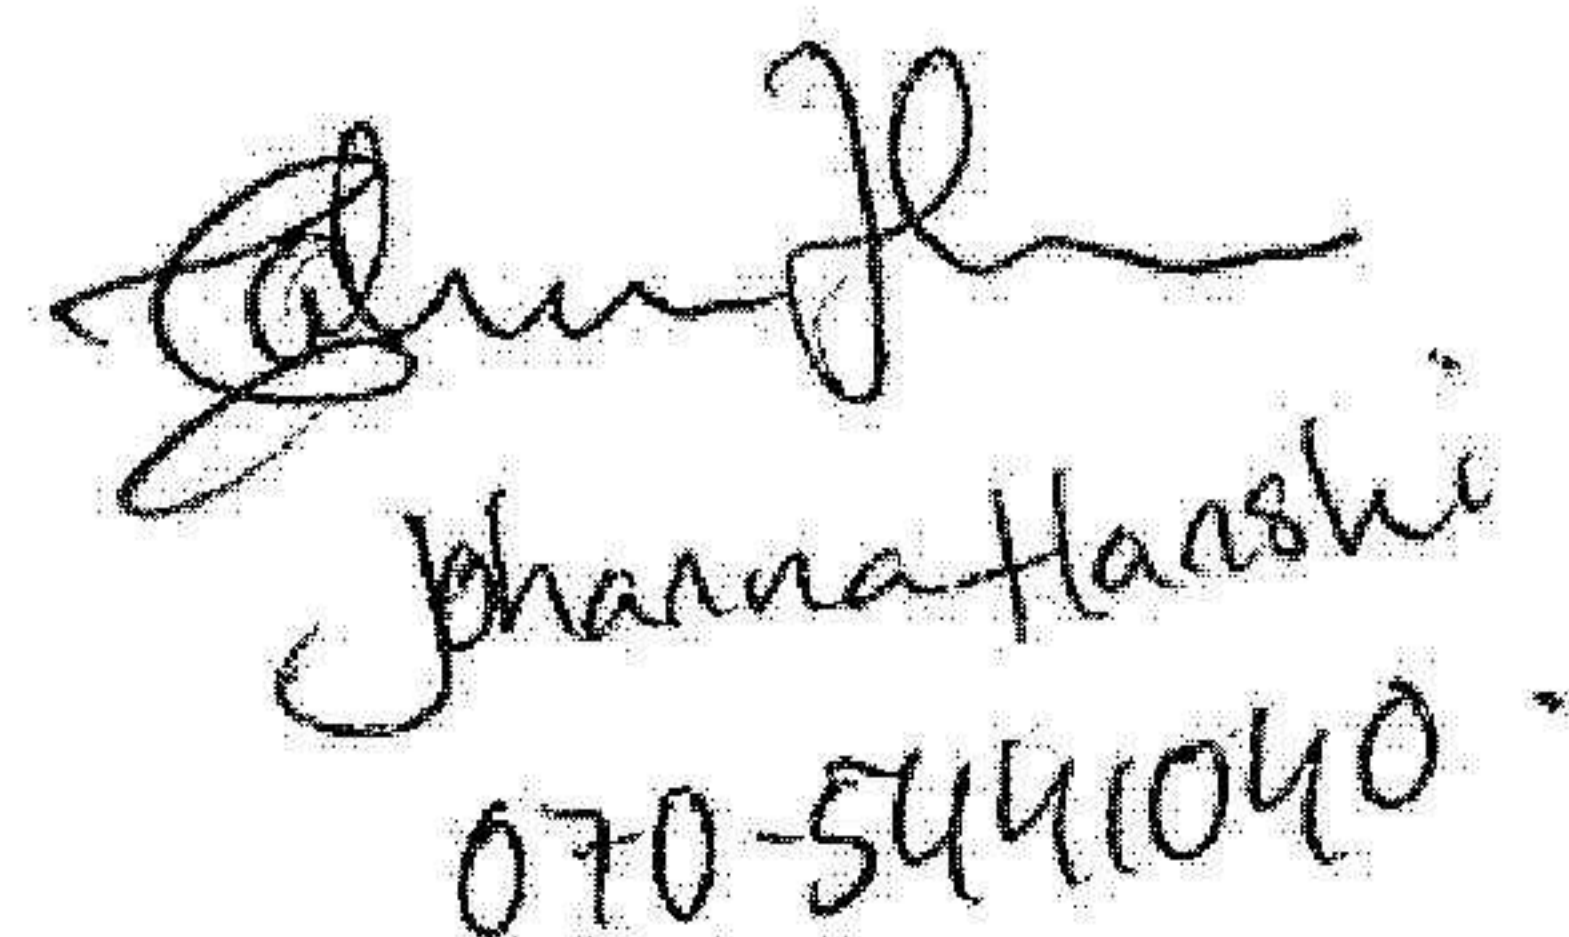 Johanna Hanshi
070-5441040